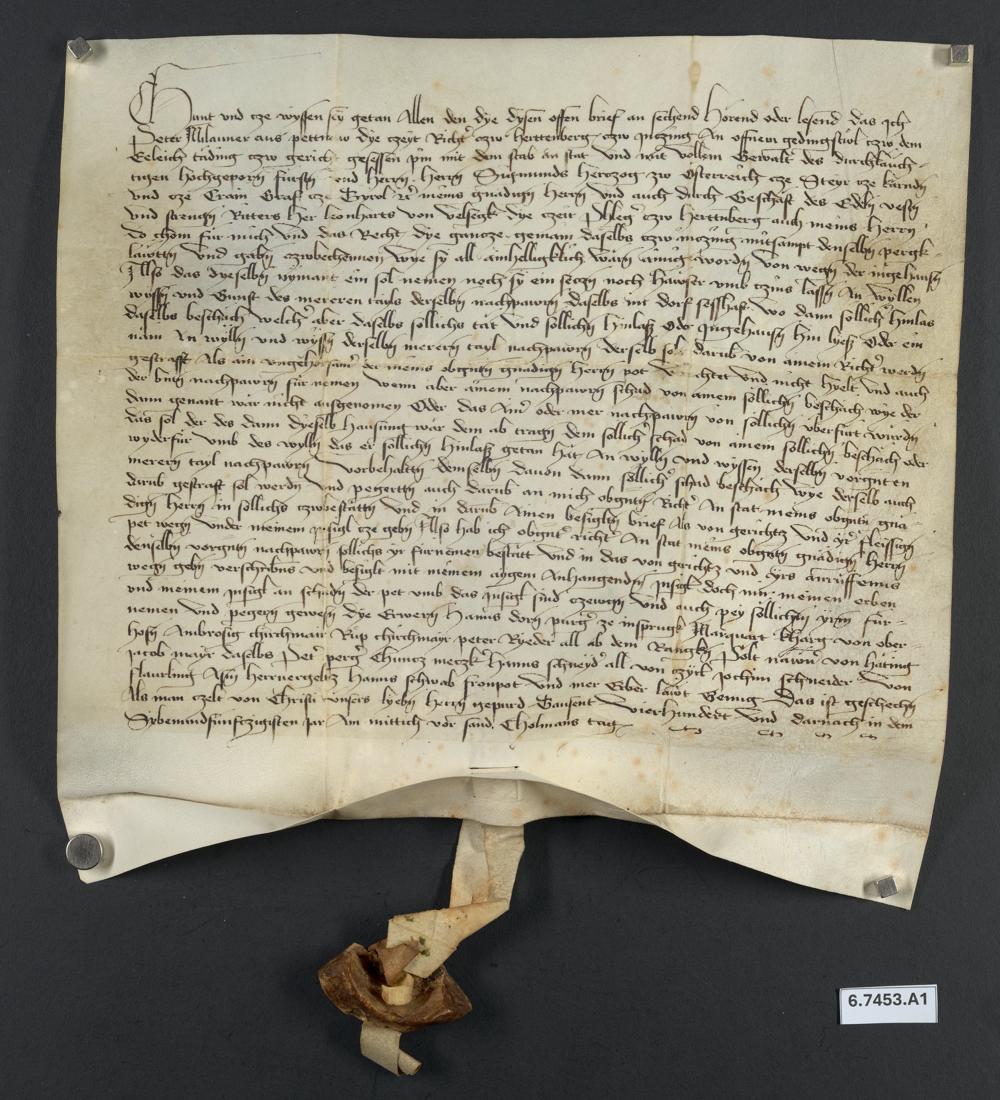 Chunt vnd cze wyssen sey getan Allen den dye dysen offen brief an sechend Hörend oder lesend das Ich
Peter Milauner aus pettnew dye czeyt Richter czw Herttenberg czw Inczing An offnem gedingstuol czw dem
Eeleich tading czw gericht gesessen pin mit dem stab an stat vnd mit vollem Gewalt des durchläuch-
tigen hochgeporn fürsten vnd herrn herrn Sigmunds Hertzog zw Österreich cze Steyr cze kärndn
vnd cze Crain Graff cze Tyrol etc meins gnädign herrn vnd auch durch Geschäft des Edeln vestn
vnd strengn Ritters Her leonharts von Velsegk dye czeit Phleger czw Herttnberg auch meins Herrn
Do chom für mich vnd das Recht dye gancze gemain daselbs czw inczing mitsampt denselbn pergk-
läwttn vnd gabn czwbechennen wye sy all ainhelligklich warn ainig wordn von wegn der ingehausn
Allso das dyeselbn nymant ein sol nemen noch sy ein seczn noch häwser vmb czins lassn An wyllen
wyssn vnd Gunst des mereren tayls derselbn nachpawrn daselbs im dorf sesshaft wo dann sollicher hinlas
daselbs beschäch welcher aber daselbs sollichs tät vnd sollichn hinlass Oder Ingehausn hin lyess Oder ein
näm An wylln vnd wyssn derselbn merern tayl nachpawrn derselb sol darüb von ainem Richter werdn
gestrafft Als ain vngehorsamer der meins obgntn gnädign Herrn pot verachtet vnd nicht hyelt vnd auch
der bmn nachpawrn für nemen wenn aber ainem nachpawrn schad von ainem sollichn beschäch wye der
dann genant wär nicht ausgenomen Oder das Ainer oder mer nachpawrn von sollichn überfürt würdn
das sol der des dann dyeselb hausung wär dem ab tragn dem sollicher schad von ainem sollichn beschäch oder
wyderfür vmb des wylln das er sollichn hinlass getan hat An wylln vnd wyssen derselbn vorgnten
merern tayl nachpawrn vorbehaltn demselbn dauon dann sollicher schad beschäch wye derselb auch
darüb gestraft sol werdn vnd pegertn auch darüb an mich obgntn Richter An stat meins obgntn gnä-
dign Herrn in sollichs czwbestättn vnd in darüb Ainen besigltn brief Als von gerichtz vnd yrer fleissign
pet wegn vnder meinem Insigl cze gebn Allso hab ich obgnter richter An stat meins obgntn gnädign Herrn
denselbn vorgntn nachpawrn sollichs yr fürnemen bestätt vnd in das von gerichtz vnd yrs anrüffenns
wegn gebn verschribns vnd besiglt mit meinem aygem Anhangendn Insigl doch mir meinen erben
vnd meinem Insigl an schadn der pet vmb das Insigl sind czewgn vnd auch pey sollichem yrem für-
nemen vnd pegern gewesn dye Erwern Hanns dorn purger ze insprugk Marquart kharg von ober-
hofn Ambrosig chirchmair Rüp chirchmayr peter Ryeder all ab dem Rangkn Polt näwr von häting
Jacob mayr daselbs Peter perger Chuncz meczker Hanns schneyder all von czyrl Jochim schneider von
flaurling Asm herrnergeltz Hanns schwab fronpot vnd mer Erber läwt Genüg Das ist geschechn
Als man czelt von Christi vnsers lyebn Herrn gepurd Tausent vierhundert vnd darnach in dem
Sybenundfünftzigisten jar Am mittich vor sand Cholmans tag
6.7453.A1